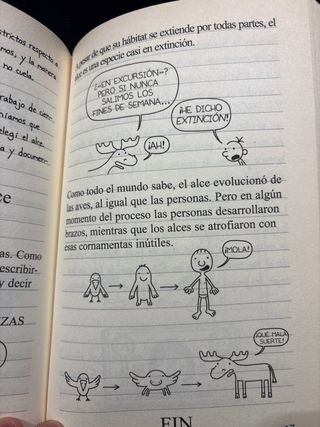 strictos respecto a
mos, y la manera
no cuela.
rabajo de cien-
níamos que
elegí el alce.
a y documen-
ce
as. Como
escribir-
y decir
ZAS
A pesar de que su hábitat se extiende por todas partes, el
alce es una especie casi en extinción.
¿«EN EXCURSIÓN»?
PERO SI NUNCA
SALIMOS LOS
FINES DE SEMANA...
¡HE DICHO
EXTINCIÓN!
¡AH!
Como todo el mundo sabe, el alce evolucionó de
las aves, al igual que las personas. Pero en algún
momento del proceso las personas desarrollaron
brazos, mientras que los alces se atrofiaron con
esas cornamentas inútiles.
¡MOLA!
¡QUÉ MALA
SUERTE!
FIN